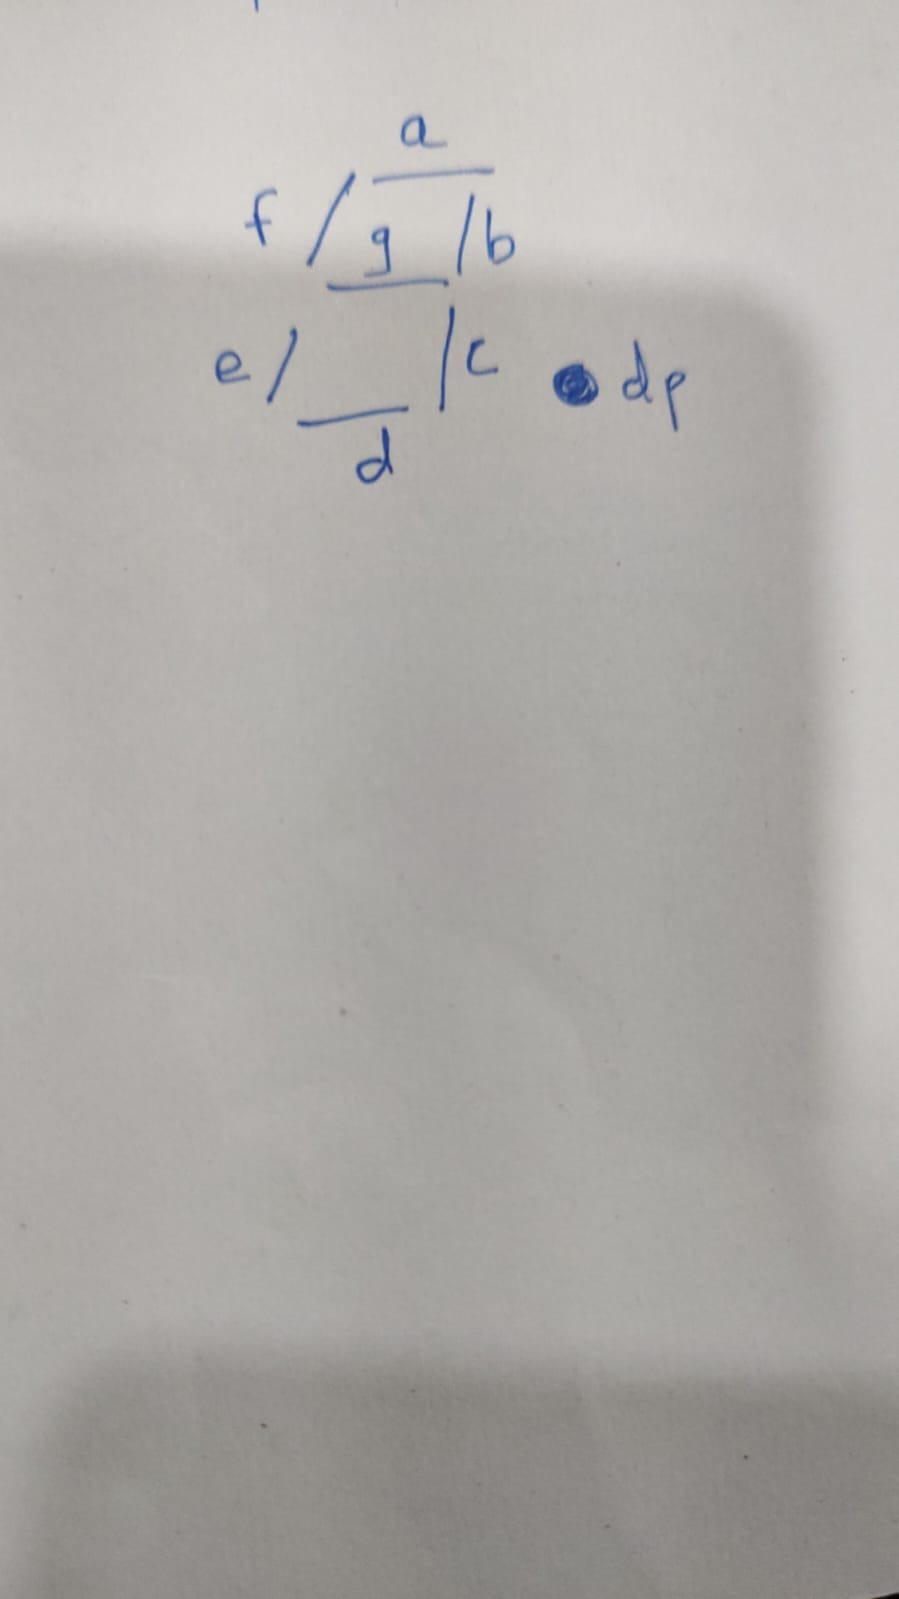 a
f g b
e c dp
d